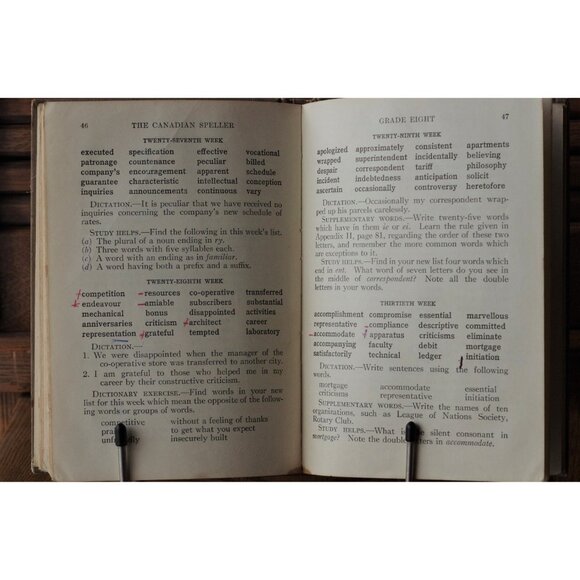 46 THE CANADIAN SPELLER
TWENTY-SEVENTH WEEK
executed specification effective vocational
patronage countenance peculiar billed
company's encouragement apparent schedule
guarantee characteristic intellectual conception
inquiries announcements continuous vary
DICTATION.—It is peculiar that we have received no
inquiries concerning the company's new schedule of
rates.
STUDY HELPS.—Find the following in this week's list.
(a) The plural of a noun ending in ry.
(b) Three words with five syllables each.
(c) A word with an ending as in familiar.
(d) A word having both a prefix and a suffix.
TWENTY-EIGHTH WEEK
competition resources co-operative transferred
endeavour amiable subscribers substantial
mechanical bonus disappointed activities
anniversaries criticism architect career
representation grateful tempted laboratory
DICTATION.—
1. We were disappointed when the manager of the
co-operative store was transferred to another city.
2. I am grateful to those who helped me in my
career by their constructive criticism.
DICTIONARY EXERCISE.—Find words in your new
list for this week which mean the opposite of the follow-
ing words or groups of words.
competitive without a feeling of thanks
to get what you expect
insecurely built
GRADE EIGHT 47
TWENTY-NINTH WEEK
apologized approximately consistent apartments
wrapped superintendent incidentally believing
despair correspondent tariff philosophy
incident indebtedness anticipation solicit
ascertain occasionally controversy heretofore
DICTATION.—Occasionally my correspondent wrap-
ped up his parcels carelessly.
SUPPLEMENTARY WORDS.—Write twenty-five words
which have in them ie or ei. Learn the rule given in
Appendix II, page 81, regarding the order of these two
letters, and remember the more common words which
are exceptions to it.
STUDY HELPS.—Find in your new list four words which
end in ent. What word of seven letters do you see in
the middle of correspondent? Note all the double
letters in your words.
THIRTIETH WEEK
accomplishment compromise essential marvellous
representative compliance descriptive committed
accommodate apparatus criticisms eliminate
accompanying faculty debit mortgage
satisfactorily technical ledger initiation
DICTATION.—Write sentences using the following
words.
mortgage accommodate essential
criticisms representative initiation
SUPPLEMENTARY WORDS.—Write the names of ten
organizations, such as League of Nations Society,
Rotary Club.
STUDY HELPS.—What is the silent consonant in
mortgage? Note the double letters in accommodate.